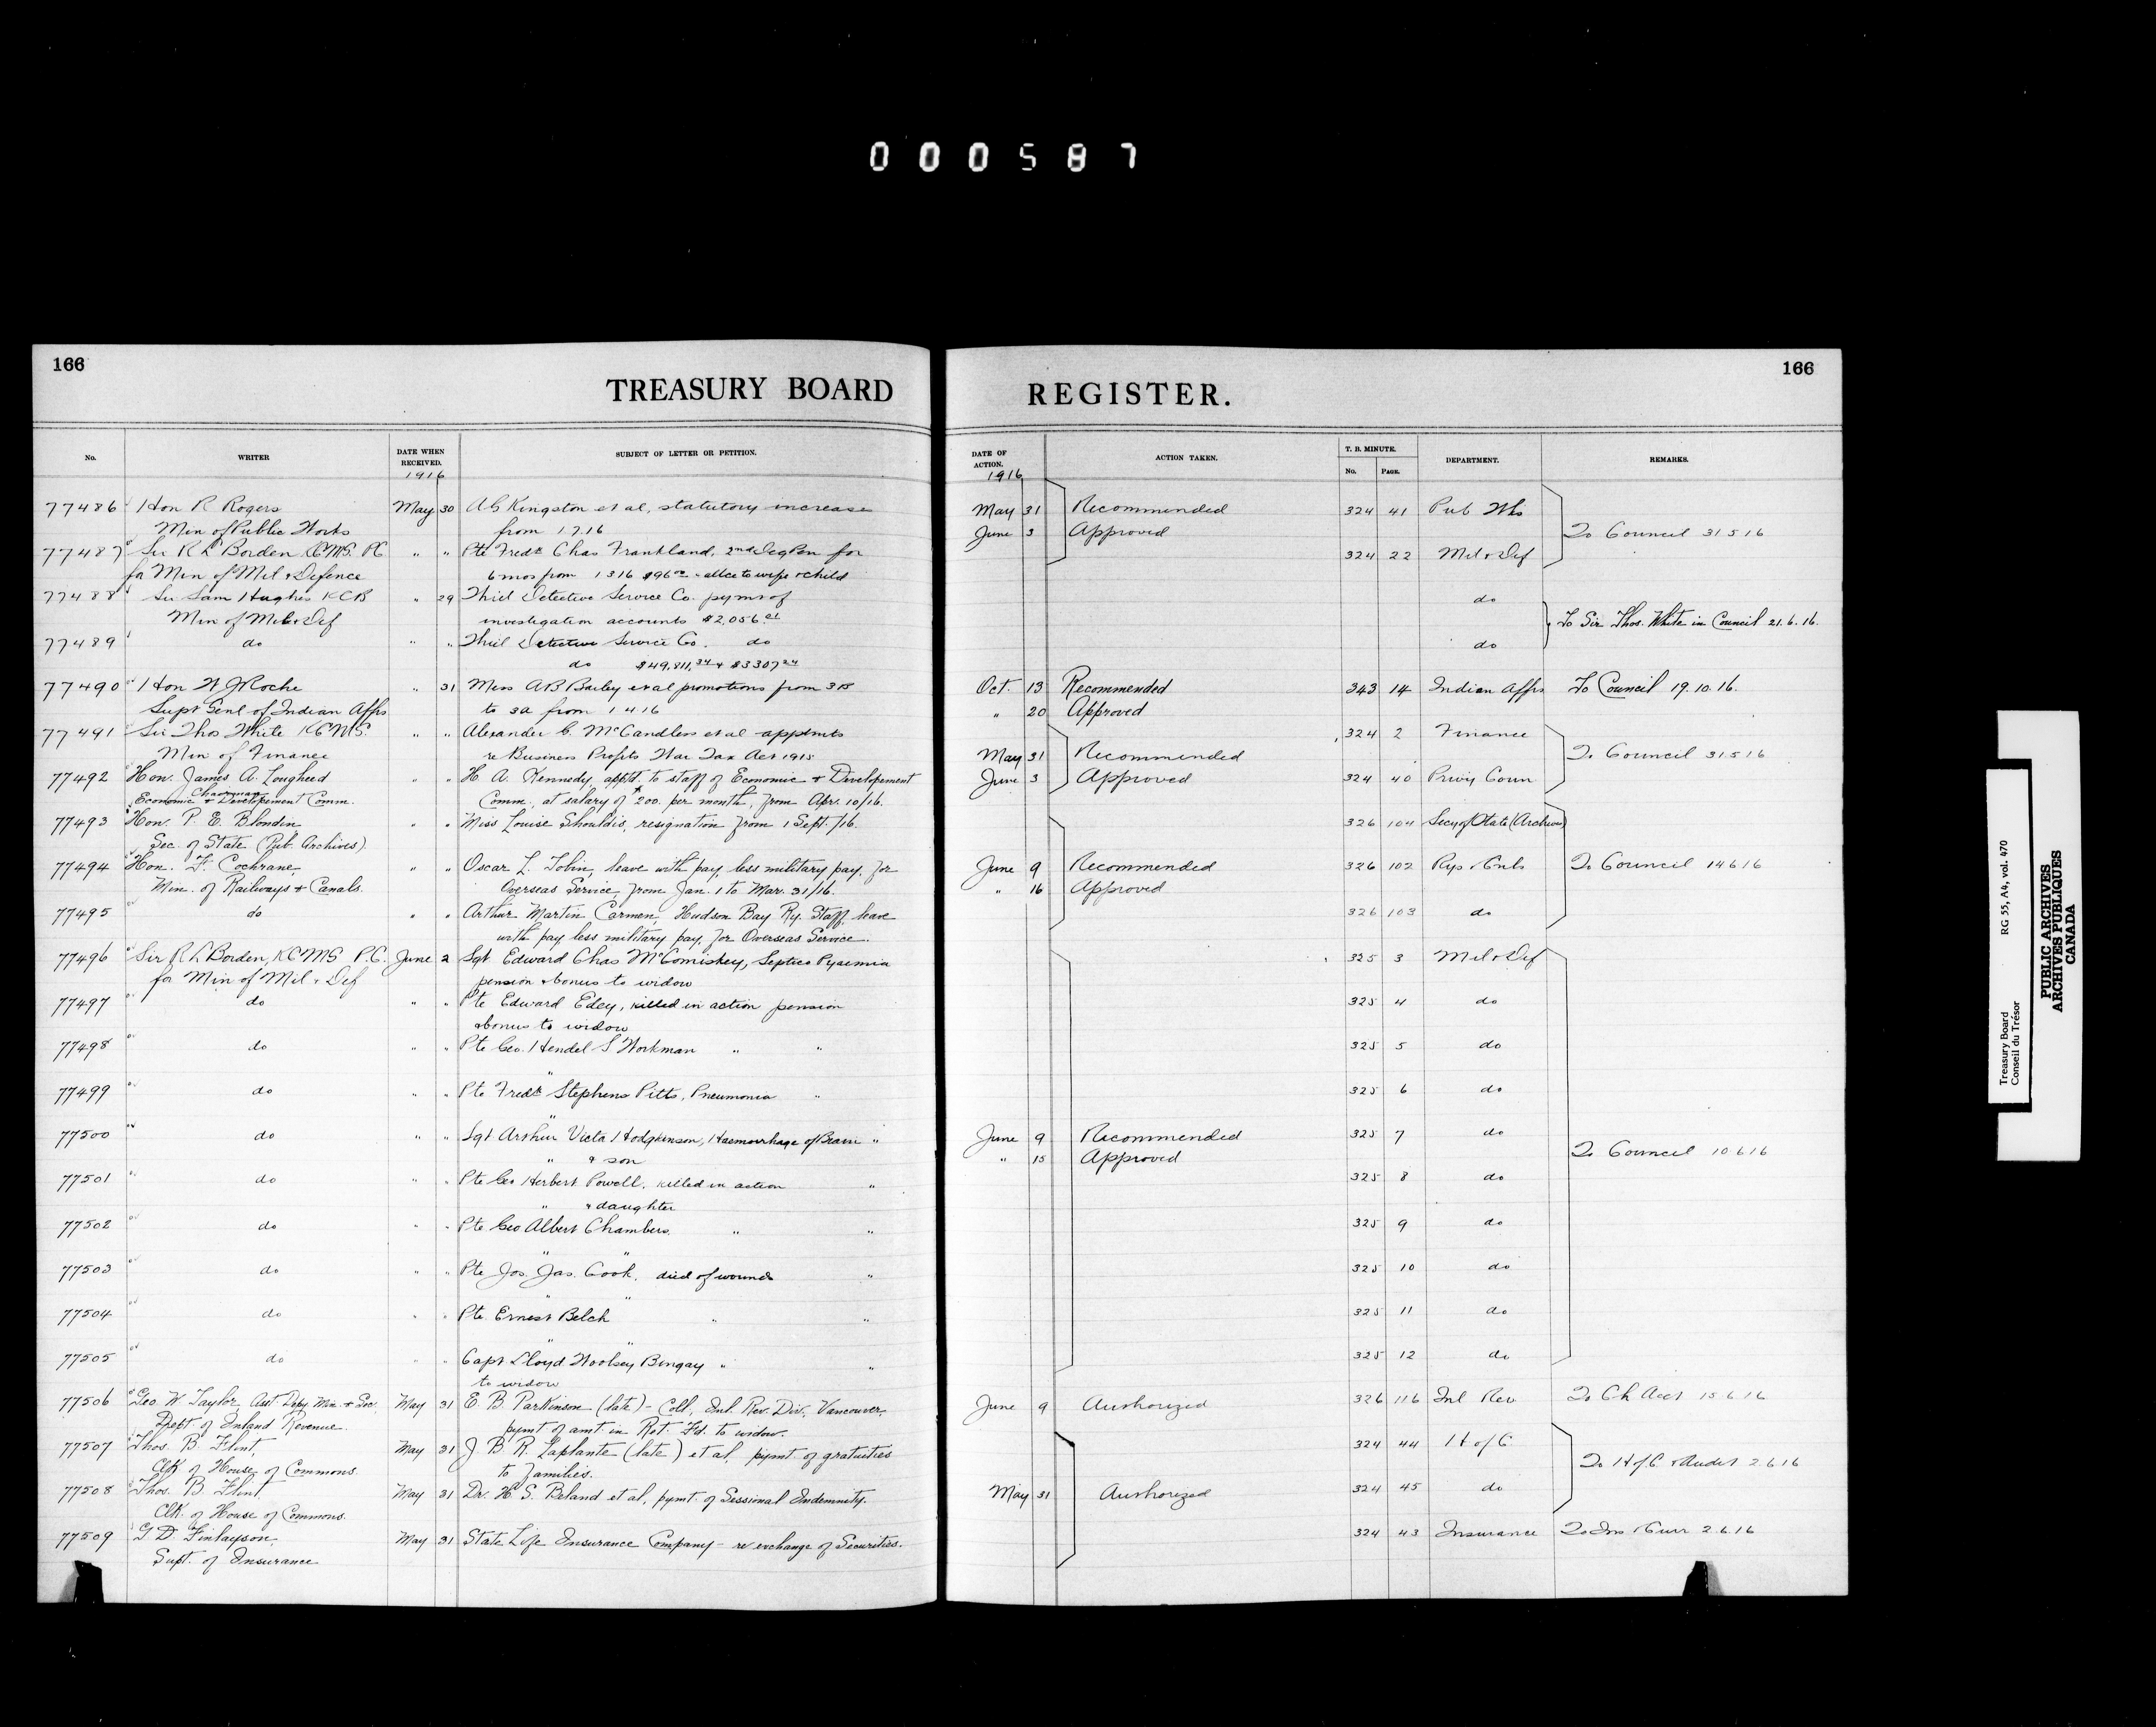 000587
166
TREASURY BOARD
No.
WRITER
DATE WHEN RECEIVED.
1916
SUBJECT OF LETTER OR PETITION.
77486 Hon R Rogers May 30 A G Kingston et al, statutory increase
Min of Public Works from 1.7.16
77487 Sir R L Borden KCMG. PC " " Pte Fredk Chas Frankland, 2nd Deg Pen for
for Min of Mil & Defence 6 mos from 1 3 16 $96 00 - allce to wife & child
77488 Sir Sam Hughes KCB " 29 Thiel Detective Service Co. pymt of
Min of Mil & Def investigation accounts $2,056.
77489 do " " Thiel Detective Service Co. do
do $49,811.34 & $3307 24
77490 Hon W J Roche " 31 Miss A B Bailey et al promotions from 3B
Supt Genl of Indian Affrs to 3A from 1 4 16
77491 Sir Thos White KCMG. " " Alexander C. McCandless et al apptmts
Min of Finance re Business Profits War Tax Act 1915
77492 Hon. James A. Lougheed " " H. A. Kennedy, apptd. to staff of Economic & Developement
Chairman
Economic & Developement Comm. Comm., at salary of $200. per month, from Apr. 10/16.
77493 Hon. P. E. Blondin " " Miss Louise Shouldis, resignation from 1 Sept./16.
Sec. of State (Pub. Archives)
77494 Hon. F. Cochrane " " Oscar L. Tobin, leave with pay, less military pay, for
Min. of Railways & Canals. Overseas Service from Jan. 1 to Mar. 31/16.
77495 do " " Arthur Martin Carmen, Hudson Bay Ry. Staff, leave
with pay less military pay, for Overseas Service.
77496 Sir R L Borden, KCMG P.C. June 2 Sgt Edward Chas McComiskey, Septico Pyaemia
for Min of Mil & Def pension & bonus to widow
77497 do " " Pte Edward Edey, killed in action pension
& bonus to widow
77498 do " " Pte Geo. Hendel S Workman " "
"
77499 do " " Pte Fredk Stephens Pitts, Pneumonia "
"
77500 do " " Sgt Arthur Victa Hodgkinson, Haemorrhage of Brain "
" & son
77501 do " " Pte Geo Herbert Powell, killed in action "
" & daughter
77502 do " " Pte Geo Albert Chambers, " "
" "
77503 do " " Pte Jos. Jas. Cook, died of wounds "
" "
77504 do " " Pte. Ernest Belch " "
" "
77505 do " " Capt Lloyd Woolsey Bingay " "
to widow
77506 Geo. W. Taylor, Asst Depy Min. & Sec. May 31 E. B. Parkinson (late) - Coll, Inl. Rev. Div., Vancouver,
Dept. of Inland Revenue. pymt of amt. in Ret. Fd. to widow.
77507 Thos. B. Flint, May 31 J. B. R. Laplante (late) et al, pymt. of gratuities
Clk of House of Commons. to families.
77508 Thos. B. Flint, May 31 Dr. H. S. Beland et al, pymt. of Sessional Indemnity.
Clk. of House of Commons.
77509 G D. Finlayson, May 31 State Life Insurance Company - re exchange of Securities.
Supt. of Insurance
166
REGISTER.
DATE OF ACTION.
1916
ACTION TAKEN.
T. B. MINUTE.
No. PAGE.
DEPARTMENT.
REMARKS.
May 31 Recommended 324 41 Pub Wks
June 3 Approved To Council 31 5 16
324 22 Mil & Def
do
To Sir Thos. White in Council 21. 6. 16.
do
Oct. 13 Recommended 343 14 Indian Affrs To Council 19. 10. 16.
" 20 Approved
324 2 Finance
May 31 Recommended To Council 31 5 16
June 3 Approved 324 40 Privy Coun
326 104 Secy of State (Archives)
June 9 Recommended 326 102 Rys & Cnls To Council 14 6 16
" 16 Approved
326 103 do
325 3 Mil & Def
325 4 do
325 5 do
325 6 do
June 9 Recommended 325 7 do
" 15 Approved To Council 10 6 16
325 8 do
325 9 do
325 10 do
325 11 do
325 12 do
June 9 Authorized 326 116 Inl Rev To Ch Acct 15 6 16
324 44 H of C
To H of C & Audit 2 6 16
May 31 Authorized 324 45 do
324 43 Insurance To Ins & Curr 2 6 16
Treasury Board
Conseil du Trésor
RG 55, A4, vol. 470
PUBLIC ARCHIVES
ARCHIVES PUBLIQUES
CANADA